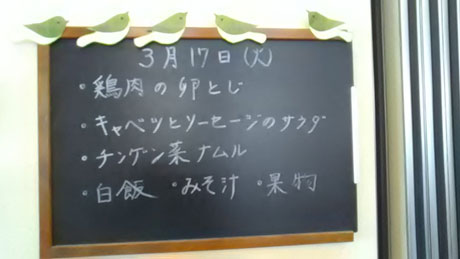 3月17日(火)
・鶏肉の卵とじ
・キャベツとソーセージのサラダ
・チンゲン菜ナムル
・白飯 ・みそ汁 ・果物